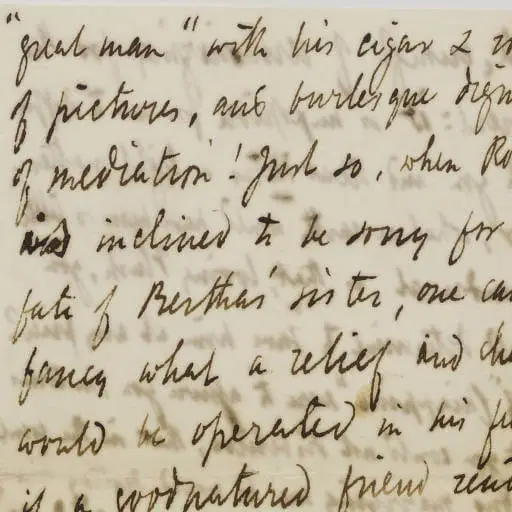 "great man" with his cigar &
of pictures, and burlesque dign
of mediation! Just so, when Ro
is inclined to be sorry for
fate of Bertha's sister, one can
fancy what a relief and che
would be operated in his fe
if a goodnatured friend